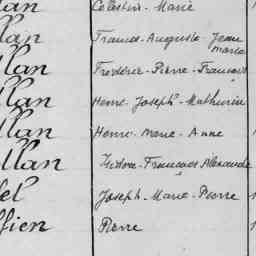 llan Célestin - Marie
llan Francois - Auguste - Jean
Marie
llan Frédéric - Pierre - François
llan Henri - Joseph - Mathurin
llan Henri - Marie - Anne
llan Isidore - François Alexandre
fel Joseph - Marie - Pierre
ffien Pierre